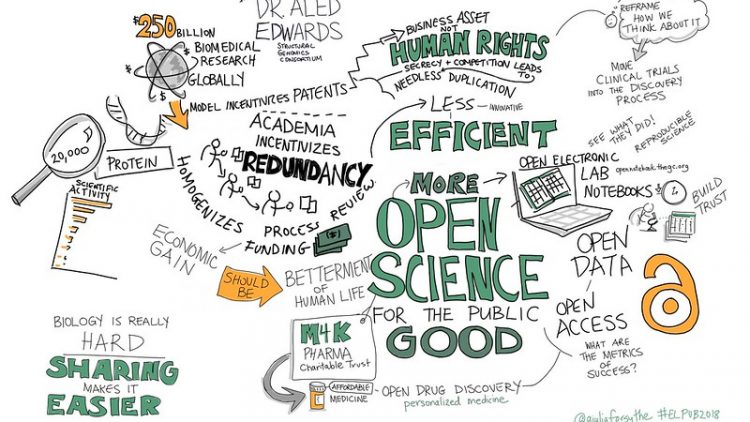 DR ALED
EDWARDS
STRUCTURAL
GENOMICS
CONSORTIUM
$250
BILLION
BIOMEDICAL
RESEARCH
GLOBALLY
MODEL INCENTIVIZES PATENTS
BUSINESS ASSET
NOT
HUMAN RIGHTS
SECRECY + COMPETITION LEADS TO
NEEDLESS DUPLICATION
REFRAME
HOW WE
THINK ABOUT IT
MOVE
CLINICAL TRIALS
INTO THE DISCOVERY
PROCESS
20,000
PROTEIN
SCIENTIFIC
ACTIVITY
ACADEMIA
INCENTIVIZES
REDUNDANCY
HOMOGENIZES
PROCESS
REVIEW
FUNDING
LESS
INNOVATIVE
EFFICIENT
SEE WHAT
THEY DID!
REPRODUCIBLE
SCIENCE
OPEN ELECTRONIC
LAB
NOTEBOOKS
opennotebook.thesgc.org
BUILD
TRUST
MORE
OPEN
SCIENCE
FOR THE PUBLIC
GOOD
ECONOMIC
GAIN
SHOULD
BE
BETTERMENT
OF HUMAN LIFE
OPEN
DATA
OPEN
ACCESS
WHAT ARE
THE METRICS
OF
SUCCESS?
BIOLOGY IS REALLY
HARD
SHARING
MAKES IT
EASIER
M4K
PHARMA
Charitable Trust
AFFORDABLE
MEDICINE
OPEN DRUG DISCOVERY
personalized medicine
@giuliaforsythe #ELPUB2018